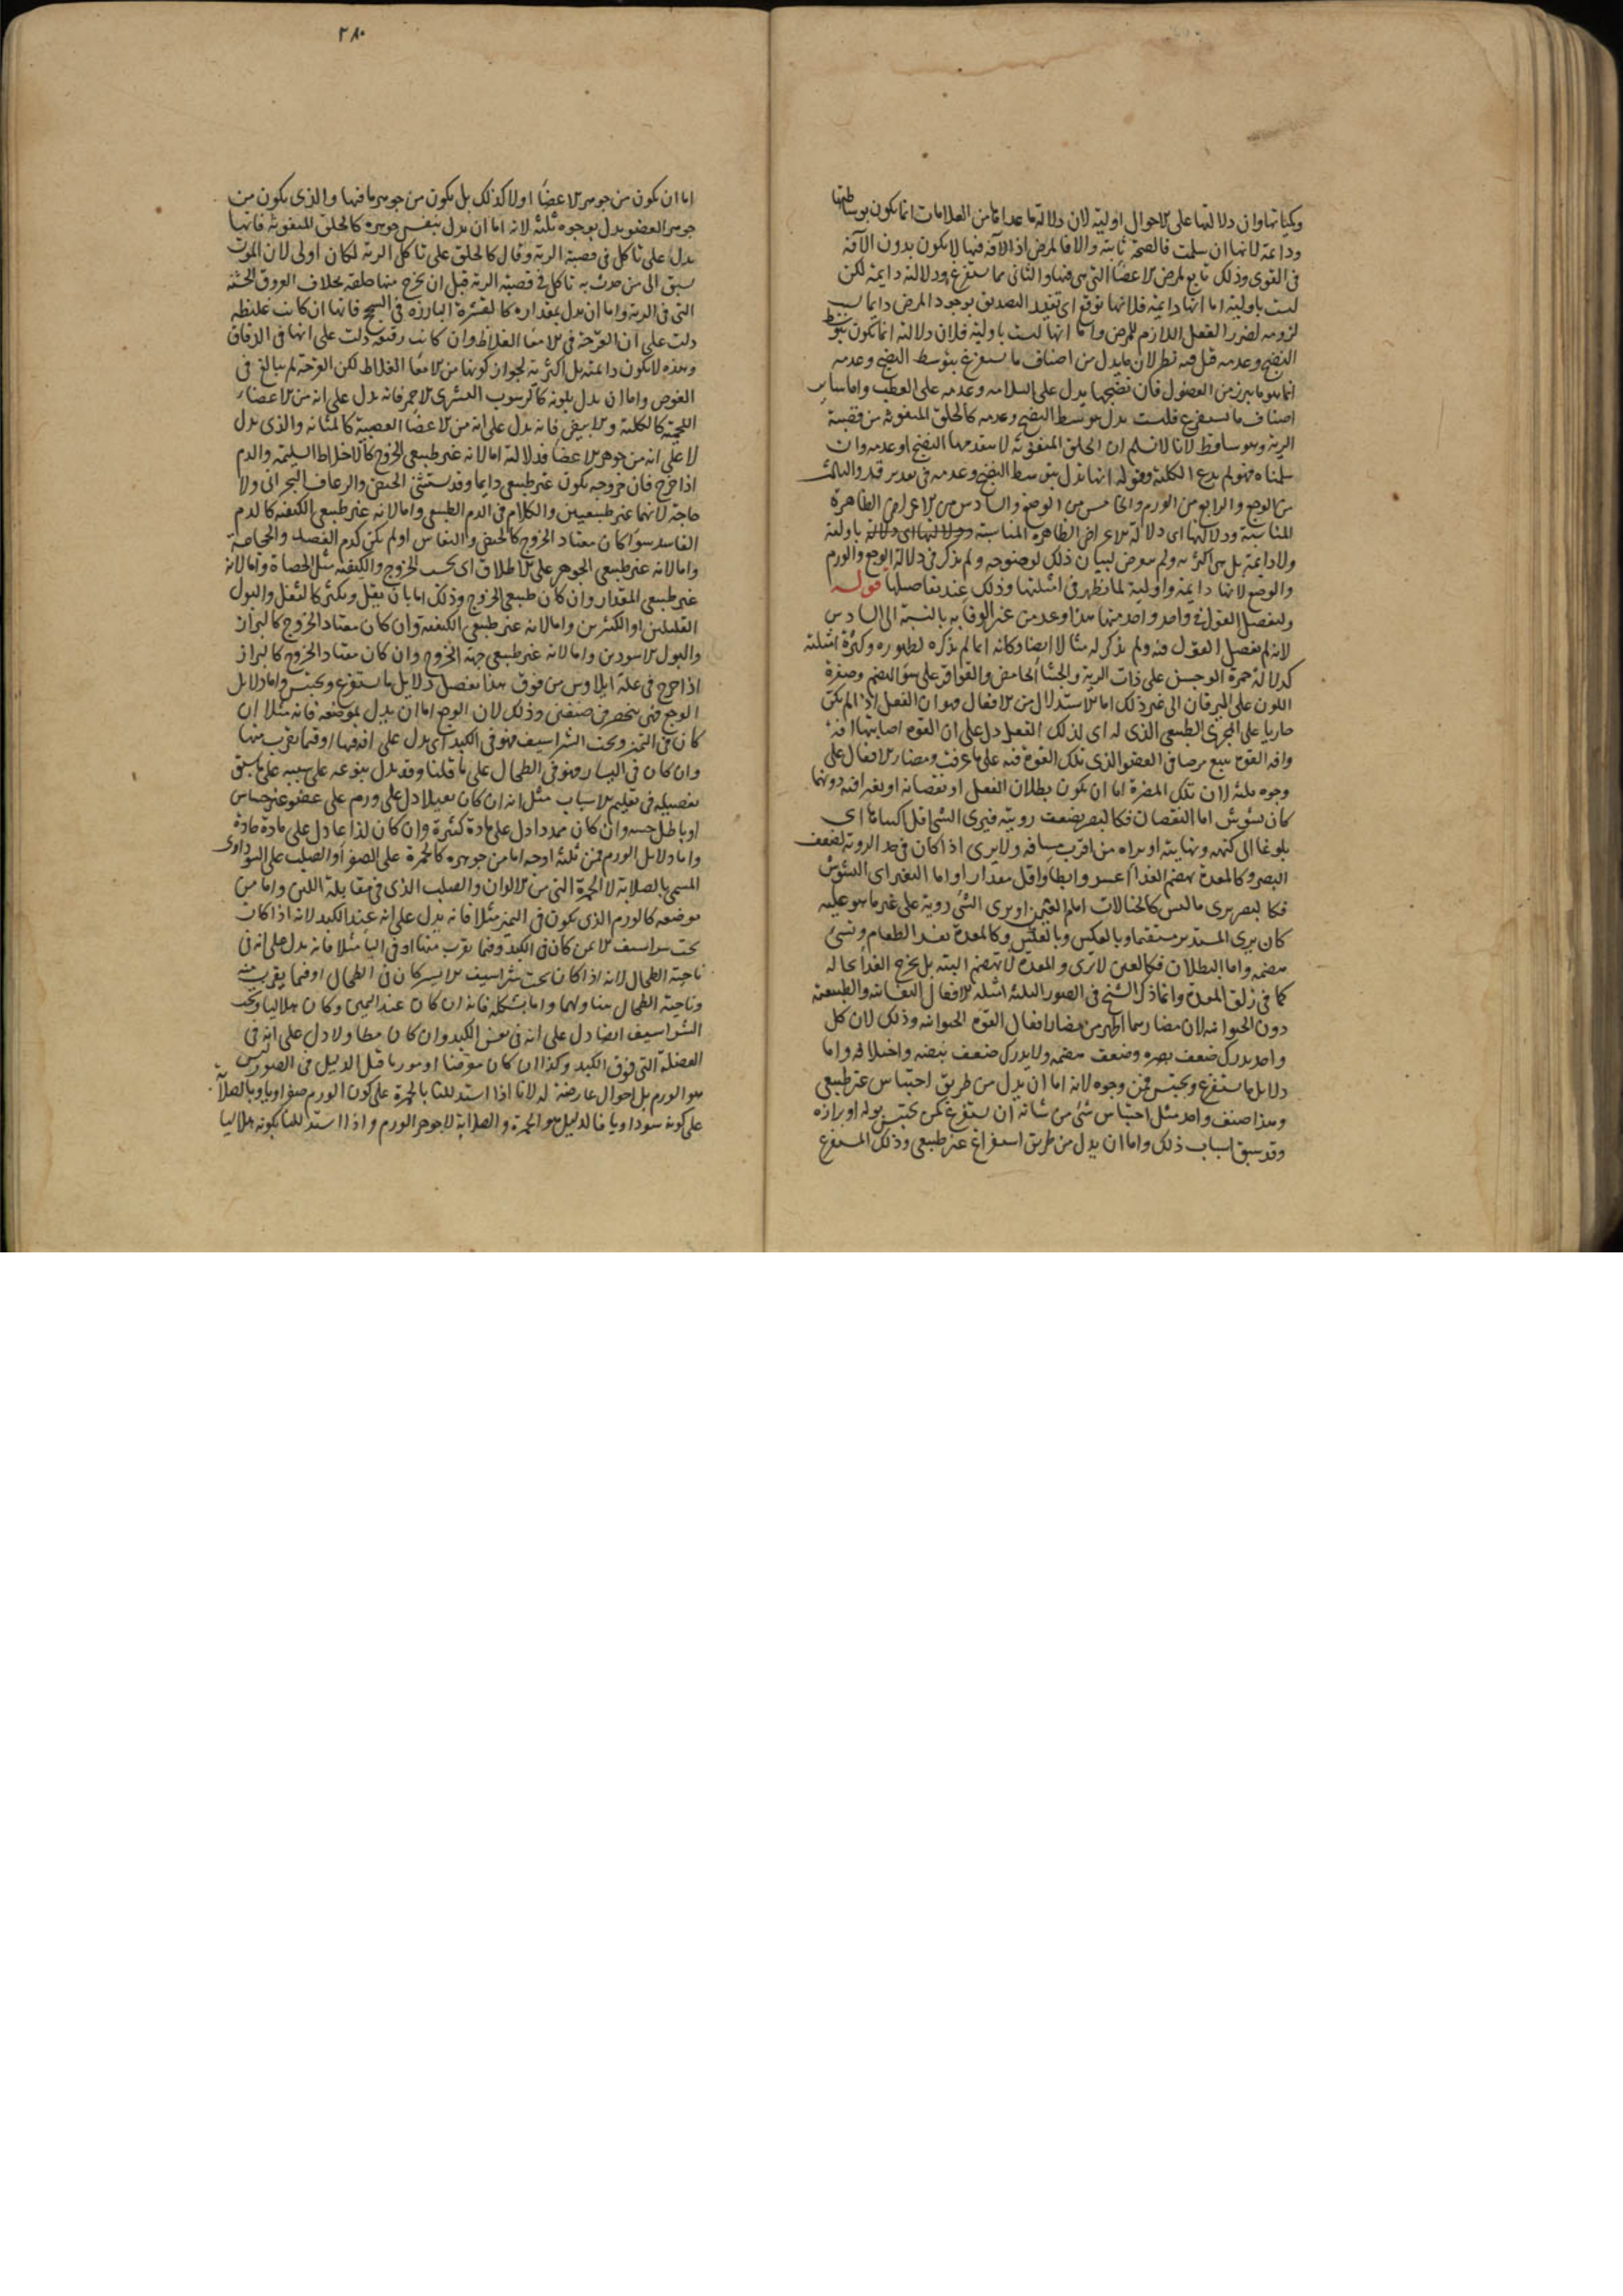 وكيفياتها وان دلالتها على الاحوال اولية لان دلالة ما عداها من العلامات انما يكون بوساطتها
ودائمة لانها ان سلمت فالصحة ثابتة والا فالمرض اذ الآفة فيها لا يكون بدون الآفة
فى القوى وذلك تابع لمرض الاعضا التى هى فيها والثانى مما يستفرغ ودلالته دايمة لكن
ليست باولية اما انها دايمة فلانها توقع اى تفيد التصديق بوجود المرض دايما بسبب
لزومه لضرر الفعل اللازم للمرض واما انها ليست باولية فلان دلالته انما يكون بتوسط
النضج وعدمه قيل فيه نظر لان ما يدل من اصناف ما يستفرغ بتوسط النضج وعدمه
انما هو ما يبرز من الفضول فان نضجها يدل على السلامه وعدمه على العطب واما ساير
اصناف ما يستفرغ فليست يدل بتوسط النضج وعدمه كالحلق المنفوثة من قصبة
الرية وهو ساقط لانا لا نسلم ان الحلق المنفوثة لا يتقدمها النضج او عدمه وان
سلمناه فهو لم يدع الكلية وقوله انها تدل بتوسط النضج وعدمه فى تقدير قد والثالث
من الوجع والرابع من الورم والخامس من الوضع والسادس من الاعراض الظاهرة
المناسبة ودلالتها اى دلالة الاعراض الظاهرة المناسبة ليست باولية
ولا دايمة بل هى اكثرية ولم يتعرض لبيان ذلك لوضوحه ولم يذكر فى دلالة الوجع والورم
والوضع لانها دايمة واولية لما نظهر فى امثلتها وذلك عند تفاصيلها قوله
ولنفصل القول فى واحد واحد منها هذا وعد من غير الوفا به بالنسبة الى السادس
لانه لم يفصل القول فيه ولم يذكر له مثالا ايضا وكانه انما لم يذكره لظهوره وكثرة امثلته
كدلالة حمرة الوجنتين على ذات الرية والجشا الحامض والقراقر على سو الهضم وصفرة
اللون على اليرقان الى غير ذلك اما الاستدلال من الافعال فهو ان الفعل اذا لم يكن
جاريا على المجرى الطبيعى الذى له اى لذلك الفعل دل على ان القوة اصابتها افة
وافة القوة يتبع مرضا فى العضو الذى تلك القوة فيه على ما عرفت ومضار الافعال على
وجوه ثلثة لان تلك المضرة اما ان يكون بطلان الفعل او نقصانه او تغيرا فيه دونهما
كان يتشوش اما النقصان فكالبصر يضعف رويته فيرى الشى اقل اكتناها اى
بلوغا الى كنهه ونهايته او يراه من اقرب مسافة ولا يرى اذا كان فى حد الروية لضعف
البصر وكالمعدة يهضم الغذا اعسر وابطا واقل مقدارا واما التغير اى التشوش
فكالبصر يرى ما ليس كالخيالات امام العين او يرى الشى روية على غير ما هو عليه
كان يرى المستدير مستقيما وبالعكس وكالمعدة تفسد الطعام وتسئ
هضمه واما البطلان فكالعين لا ترى والمعدة لا تهضم البتة بل يخرج الغذا بحاله
كما فى زلق المعدة وانما ذكر الشيخ فى الصور الثلثة امثلة الافعال النفسانية والطبيعية
دون الحيوانية لان مضارهما اظهر من مضار افعال القوة الحيوانية وذلك لان كل
واحد يدرك ضعف بصره وضعف هضمه ولا يدرك ضعف نبضه واختلافه واما
دلايل ما يستفرغ ويحتبس فمن وجوه لانه اما ان يدل من طريق احتباس غير طبيعى
وهذا صنف واحد مثل احتباس شئ من شانه ان يستفرغ كمن يحتبس بوله او برازه
وقد سبق اسباب ذلك واما ان يدل من طريق استفراغ غير طبيعى وذلك المستفرغ
٢٨٠
اما ان يكون من جوهر الاعضا او لا كذلك بل يكون من جوهر ما فيها والذى يكون من
جوهر العضو يدل بوجوه ثلثة لانه اما ان يدل بنفس جوهره كالحلق المنفوثة فانها
يدل على تاكل فى قصبة الرية وقال كالحلق على تاكل الرية لكان اولى لان الموت
يسبق الى من حدث به تاكل فى قصبة الرية قبل ان يخرج منها حلقه بخلاف العروق الخشنة
التى فى الرية واما ان يدل بمقداره كالقشرة البارزة فى السحج فانها ان كانت غليظة
دلت على ان القرحة فى الامعا الغلاظ وان كانت رقيقة دلت على انها فى الدقاق
وهذه لا يكون دايمة بل اكثرية لجواز كونها من الامعا الغلاظ لكن القرحة لم يبالغ فى
الغوص واما ان يدل بلونه كالرسوب القشرى الاحمر فانه يدل على انه من الاعضا
اللحمية كالكلية والابيض فانه يدل على انه من الاعضا العصبية كالمثانة والذى يدل
لا على انه من جوهر الاعضا فدلالته اما لانه غير طبيعى الخروج كالاخلاط السليمة والدم
اذا خرج فان خروجه يكون غير طبيعى دايما وقد يستثنى الحيض والرعاف البحرانى ولا
حاجة لانهما غير طبيعيين والكلام فى الدم الطبيعى واما لانه غير طبيعى الكيفية كالدم
الفاسد سوا كان معتاد الخروج كالحيض والنفاس او لم يكن كدم الفصد والحجامة
واما لانه غير طبيعى الجوهر على الاطلاق اى بحسب الخروج والكيفية مثل الحصاة واما لانه
غير طبيعى المقدار وان كان طبيعى الخروج وذلك اما بان يقل ويكثر كالثفل والبول
القليلين او الكثيرين واما لانه غير طبيعى الكيفية وان كان معتاد الخروج كالبراز
والبول الاسودين واما لانه غير طبيعى جهة الخروج وان كان معتاد الخروج كالبراز
اذا خرج فى علة ايلاوس من فوق هذا تفصيل دلايل ما يستفرغ ويحتبس واما دلايل
الوجع فهى ينحصر فى صنفين وذلك لان الوجع اما ان يدل بموضعه فانه مثلا ان
كان فى اليمين وتحت الشراسيف فهو فى الكبد اى يدل على افة فيها او فيما يقرب منها
وان كان فى اليسار فهو فى الطحال على ما قلنا وقد يدل بنوعه على سببه على ما سبق
تفصيله فى تعليم الاسباب مثل انه ان كان ثقيلا دل على ورم على عضو غير حساس
او باطل حسه وان كان ممددا دل على مادة كثيرة وان كان لذاعا دل على مادة حادة
واما دلايل الورم فمن ثلثة اوجه اما من جوهره كالحمرة على الصفراوى والصلب على السوداوى
المسمى بالصلابة لا الحمرة التى من الالوان والصلب الذى فى مقابلة اللين واما من
موضعه كالورم الذى يكون فى اليمين مثلا فانه يدل على انه عند الكبد لانه اذا كان
تحت شراسيف الايمن كان فى الكبد وفيما يقرب منها او فى اليسار مثلا فانه يدل على انه فى
ناحية الطحال لانه اذا كان تحت شراسيف الايسر كان فى الطحال او فيما يقرب منه
وناحية الطحال يتناولهما واما بشكله فانه ان كان عند اليمين وكان هلاليا وتحت
الشراسيف ايضا دل على انه فى نفس الكبد وان كان مطاولا دل على انه فى
العضلة التى فوق الكبد وكذا ان كان عريضا او موربا قيل الدليل فى الصور ليس
هو الورم بل احوال عارضة له لانا اذا استدللنا بالحمرة على كون الورم صفراويا وبالصلابة
على كونه سوداويا فالدليل هو الحمرة والصلابة لا جوهر الورم واذا استدللنا بكونه هلاليا